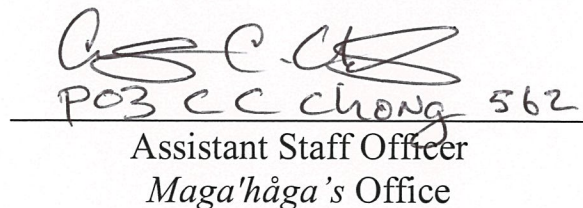 PO3 C C Chong 562
Assistant Staff Officer
Maga'håga's Office